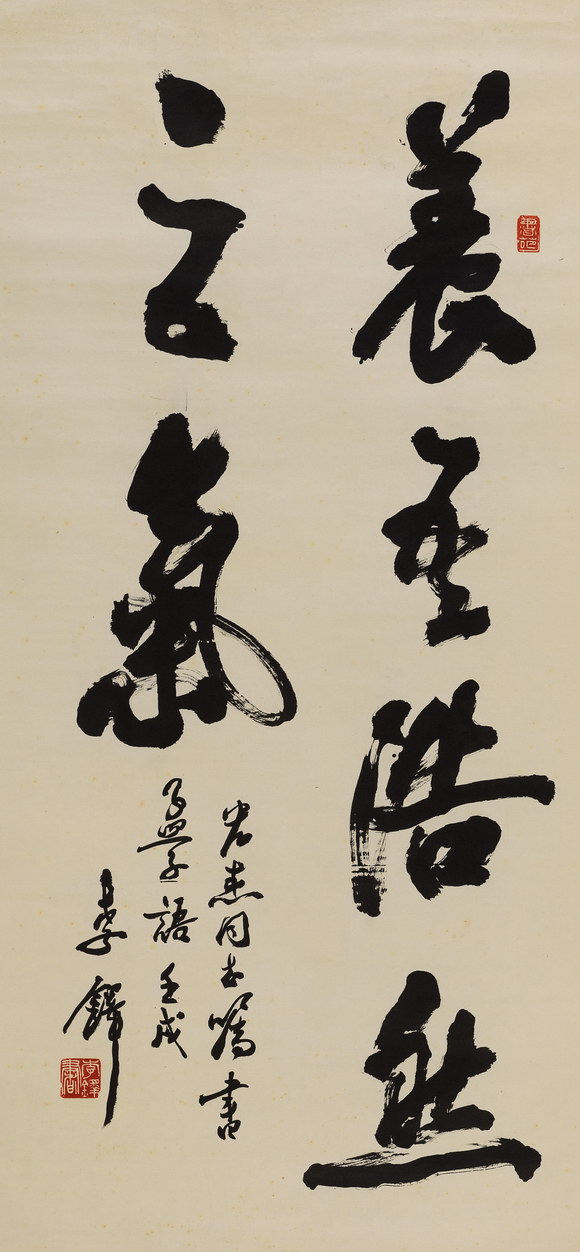 養吾浩然
之氣
光杰同志囑書
孟子語壬戌
李鐸
李鐸書